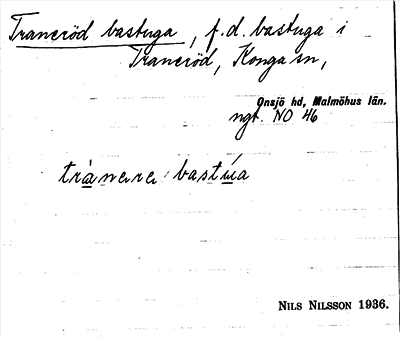 Traneröd bastuga, f.d. bastuga i
Traneröd, Konga sn,
Onsjö hd, Malmöhus län.
ngt. NO 46
trànere bastua
NILS NILSSON 1936.